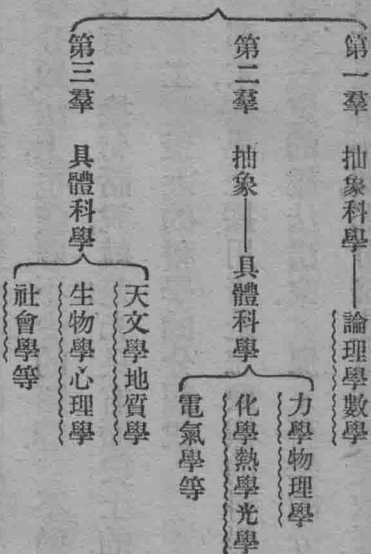 第一羣　抽象科學——論理學數學
第二羣　抽象——具體科學
力學物理學
化學熱學光學
電氣學等
第三羣　具體科學
天文學地質學
生物學心理學
社會學等